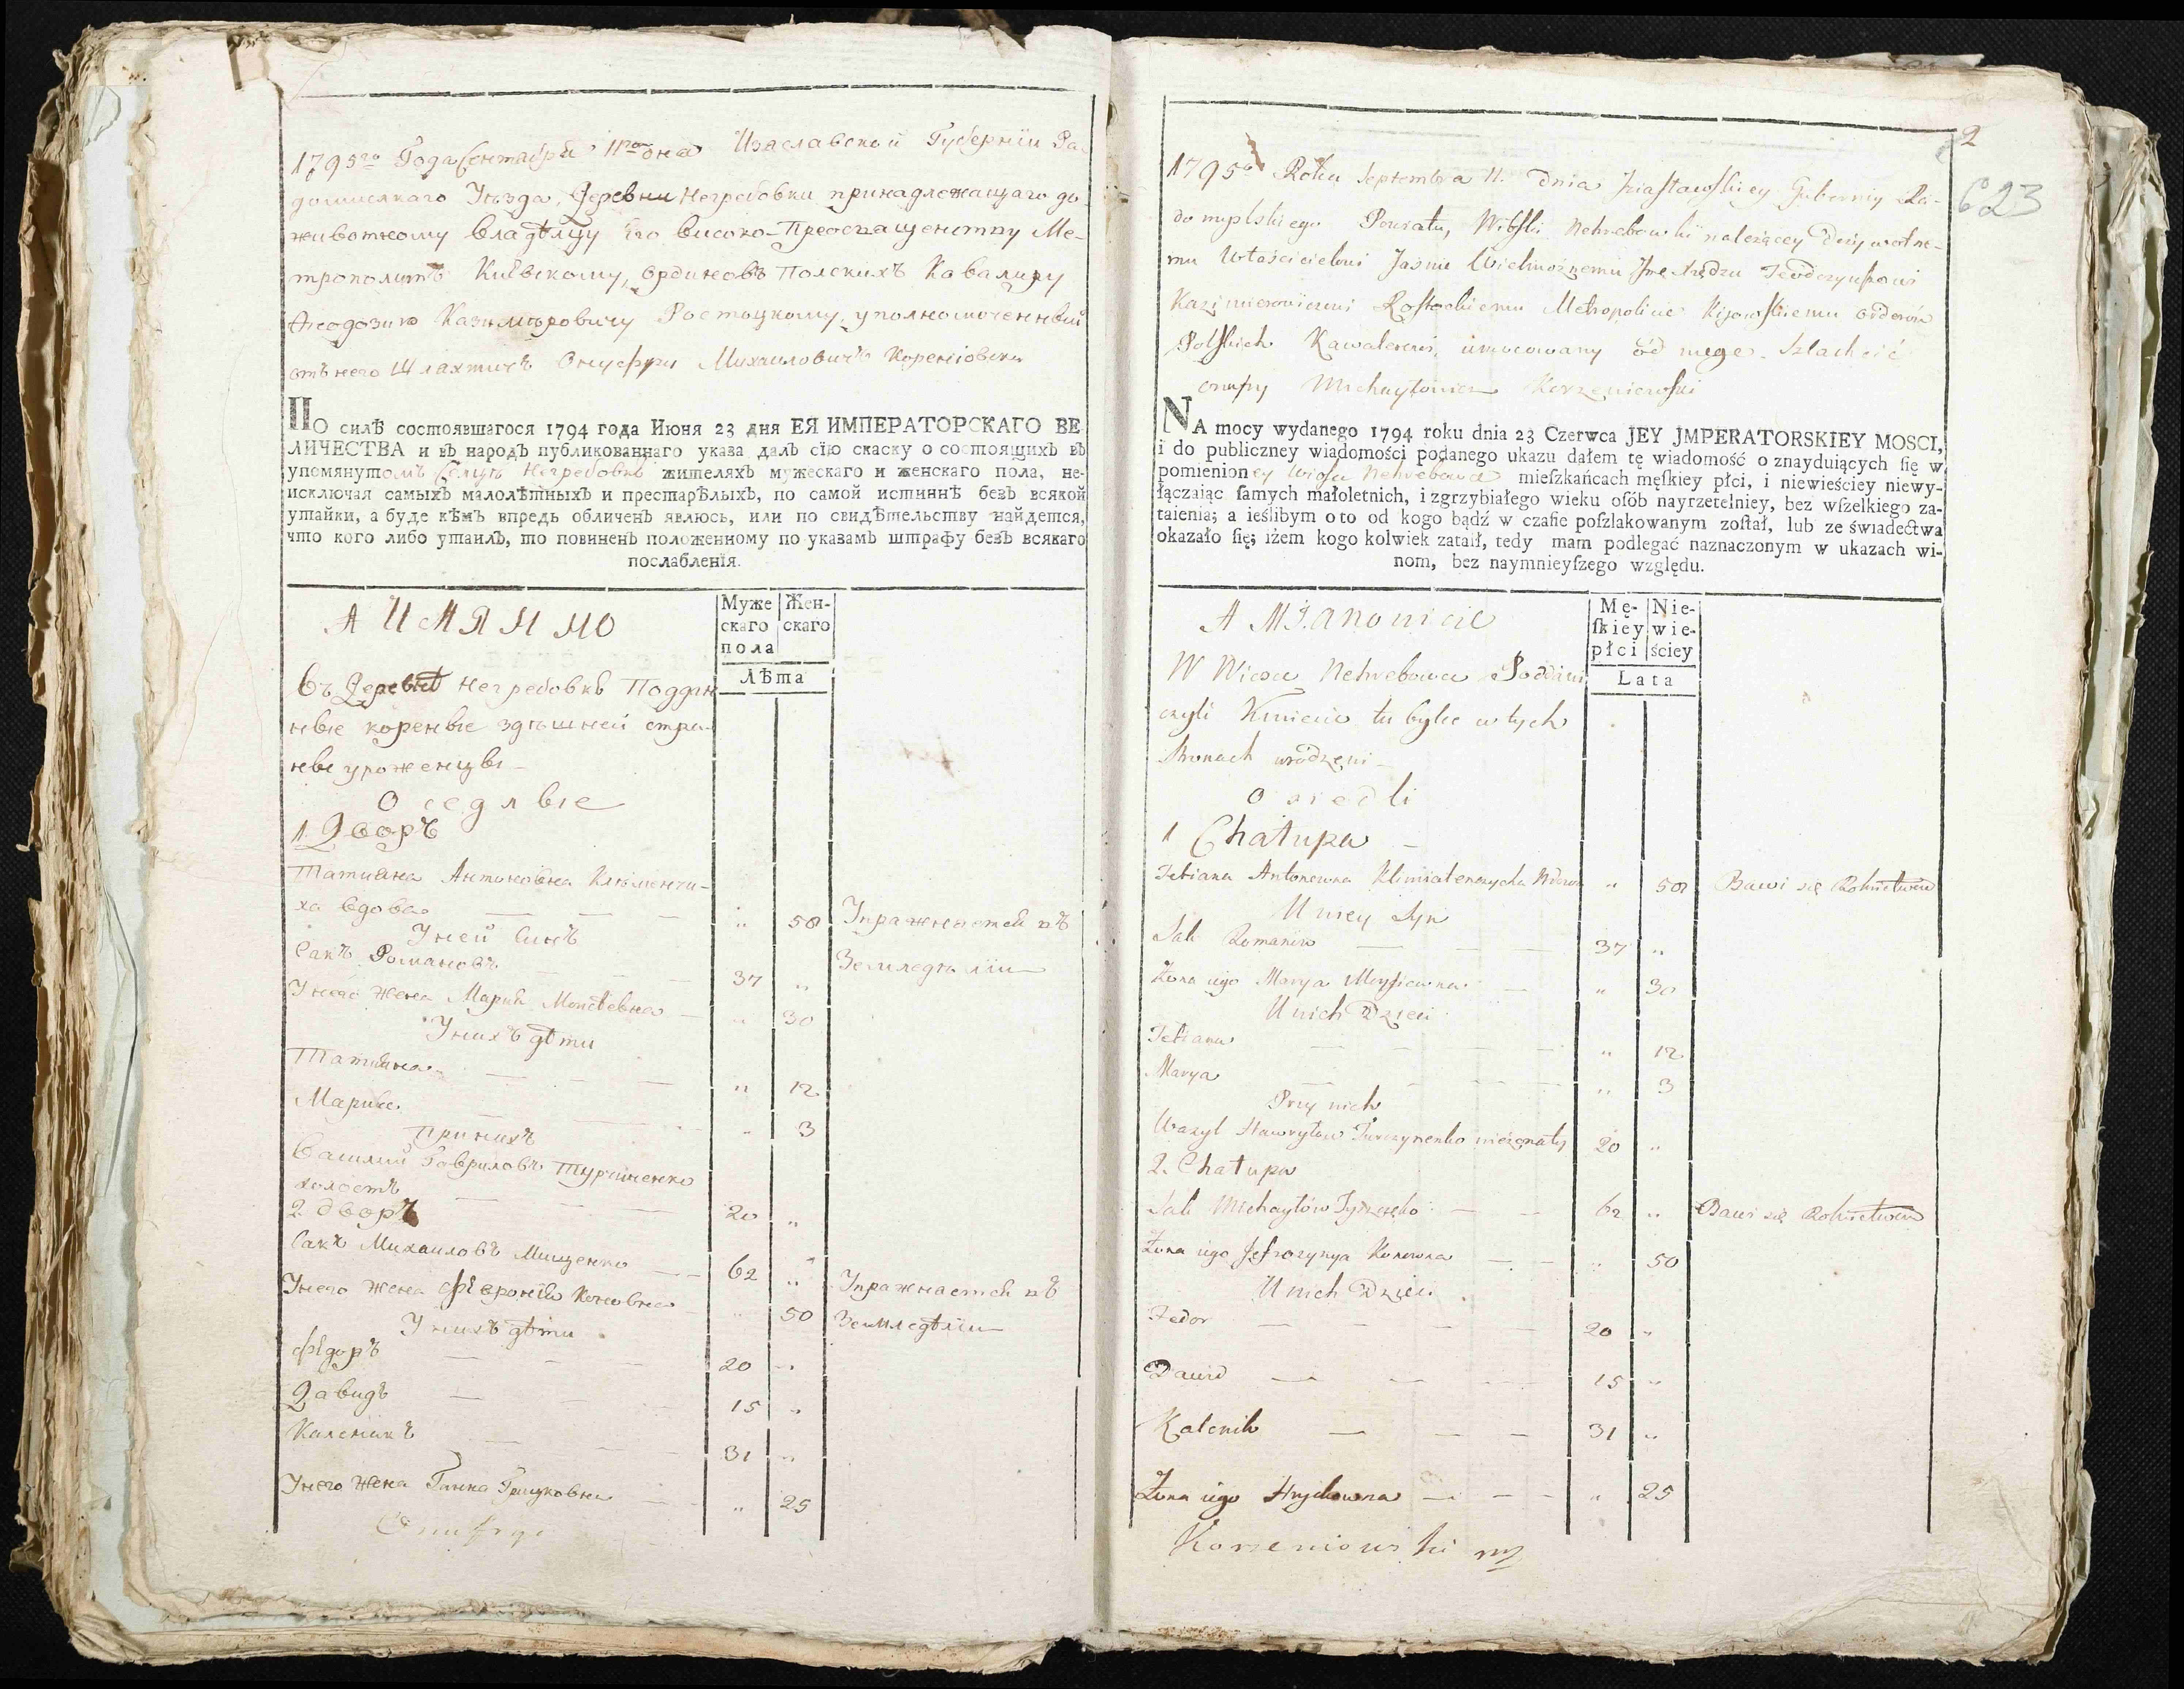 1795го Года Сентября 11го дня Изаславской Губернїи Ра-
домисякаго Уѣзда, Деревни Негребовки принадлежащаго до
животному владѣлцу Его високо-Преосвященству Ме-
трополитѣ Киевскому, ординовъ Полскихъ Кавалиру
Феодозию Казимѣровичу Ростоцкому, уполномоченный
отъ него Шляхтичъ Онуфри Михаиловичъ Коренiовски
ПО силѣ состоявшагося 1794 года Июня 23 дня ЕЯ ИМПЕРАТОРСКАГО ВЕ-
ЛИЧЕСТВА и въ народъ публикованнаго указа далъ сїю скаску о состоящихъ въ
упомянутомъ Селѣ Негребовкѣ жителяхъ мужескаго и женскаго пола, не-
исключая самыхъ малолѣтныхъ и престарѣлыхъ, по самой истиннѣ безъ всякой
утайки, а буде кѣмъ впредь обличенъ явлюсь, или по свидѣтельству найдется,
что кого либо утаилъ, то повиненъ положенному по указамъ штрафу безъ всякаго
послабленїя.
А ИМЯННО
Муже
скаго
пола
Жен-
скаго
Лѣта
Въ Деревнѣ Негребовкѣ Поддан
ные кореные здѣшней стра-
ны уроженцы
Оседлые
1 Дворъ
Татияна Антоновна Климчи-
ха вдова " 50 Упражняется въ
У ней Синъ
Земледѣлїи
Сакъ Романовъ 37 "
У него жена Мария Моисѣевна " 30
У нихъ дѣти
Татияна " 12
Мария " 3
При нихъ
Василий Гавриловъ Турчиненко
холостъ 20 "
2 дворъ
Сакъ Михаиловъ Мищенко 62 " Упражняется въ
У него жена Феврония Коновна " 50 Земледѣлїи
У нихъ дѣти
Фёдоръ 20 "
Давидъ 15 "
Каленикъ 31 "
У него жена Ганна Грицковна " 25
Onufry
2
623
1795o Roku Septembra 11. Dnia Iziasławskiey Gubernij Ra-
domyslskiego Powiatu, Wioski Nehrebowki należącey Dożywotne-
mu Właścicielowi Jaśnie Wielmożnemu Jmę Xiędzu Teodozyuszowi
Kazimierowiczowi Rostockiemu Metropolicie Kijowskiemu orderów
Polskich Kawalerowi, umocowany od niego Szlachcić
onufry Michayłowicz Korzeniewski
NA mocy wydanego 1794 roku dnia 23 Czerwca JEY JMPERATORSKIEY MOSCI,
i do publiczney wiadomości podanego ukazu dałem tę wiadomość o znayduiących ſię w
pomienioney wiosce Nehrebowce mieſzkańcach męſkiey płci, i niewieściey niewy-
łączaiąc ſamych małoletnich, i zgrzybiałego wieku oſób nayrzetelniey, bez wſzelkiego za-
taienia; a ieślibym o to od kogo bądź w czaſie poſzlakowanym zoſtał, lub ze świadectwa
okazało ſię; iżem kogo kolwiek zataił, tedy mam podlegać naznaczonym w ukazach wi-
nom, bez naymnieyſzego względu.
A MIANOWICIE
Mę-
ſkiey
płci
Nie-
wie-
ściey
Lata
W Wiosce Nehrebowce Poddani
czyli Kmiecie tu bylce w tych
Stronach urodzeni
osiedli
1 Chałupa
Tetiana Antonowna Wdowa " 50 Bawi się Rolnictwem
U niey Syn
Sak Romanów 37 "
Żona iego Marya Moysiewna " 30
U nich Dzieci
Tetiana " 12
Marya " 3
Przy nich
Wasyl Hawryłow Turczynenko nieżonaty 20 "
2. Chałupa
Sak Michayłów 62 " Bawi się Rolnictwem
Żona iego Jefrozynya Konowna " 50
U nich Dzieci
Fedor 20 "
Dawid 15 "
Kalenik 31 "
Żona iego Hryckowna " 25
Korzeniowski